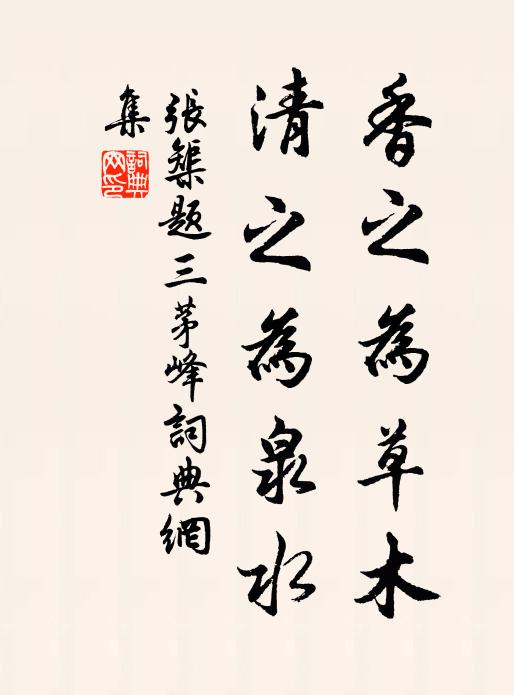 香之為草木
清之為泉水
張榘題三茅峰詞典網
集
詞典網印